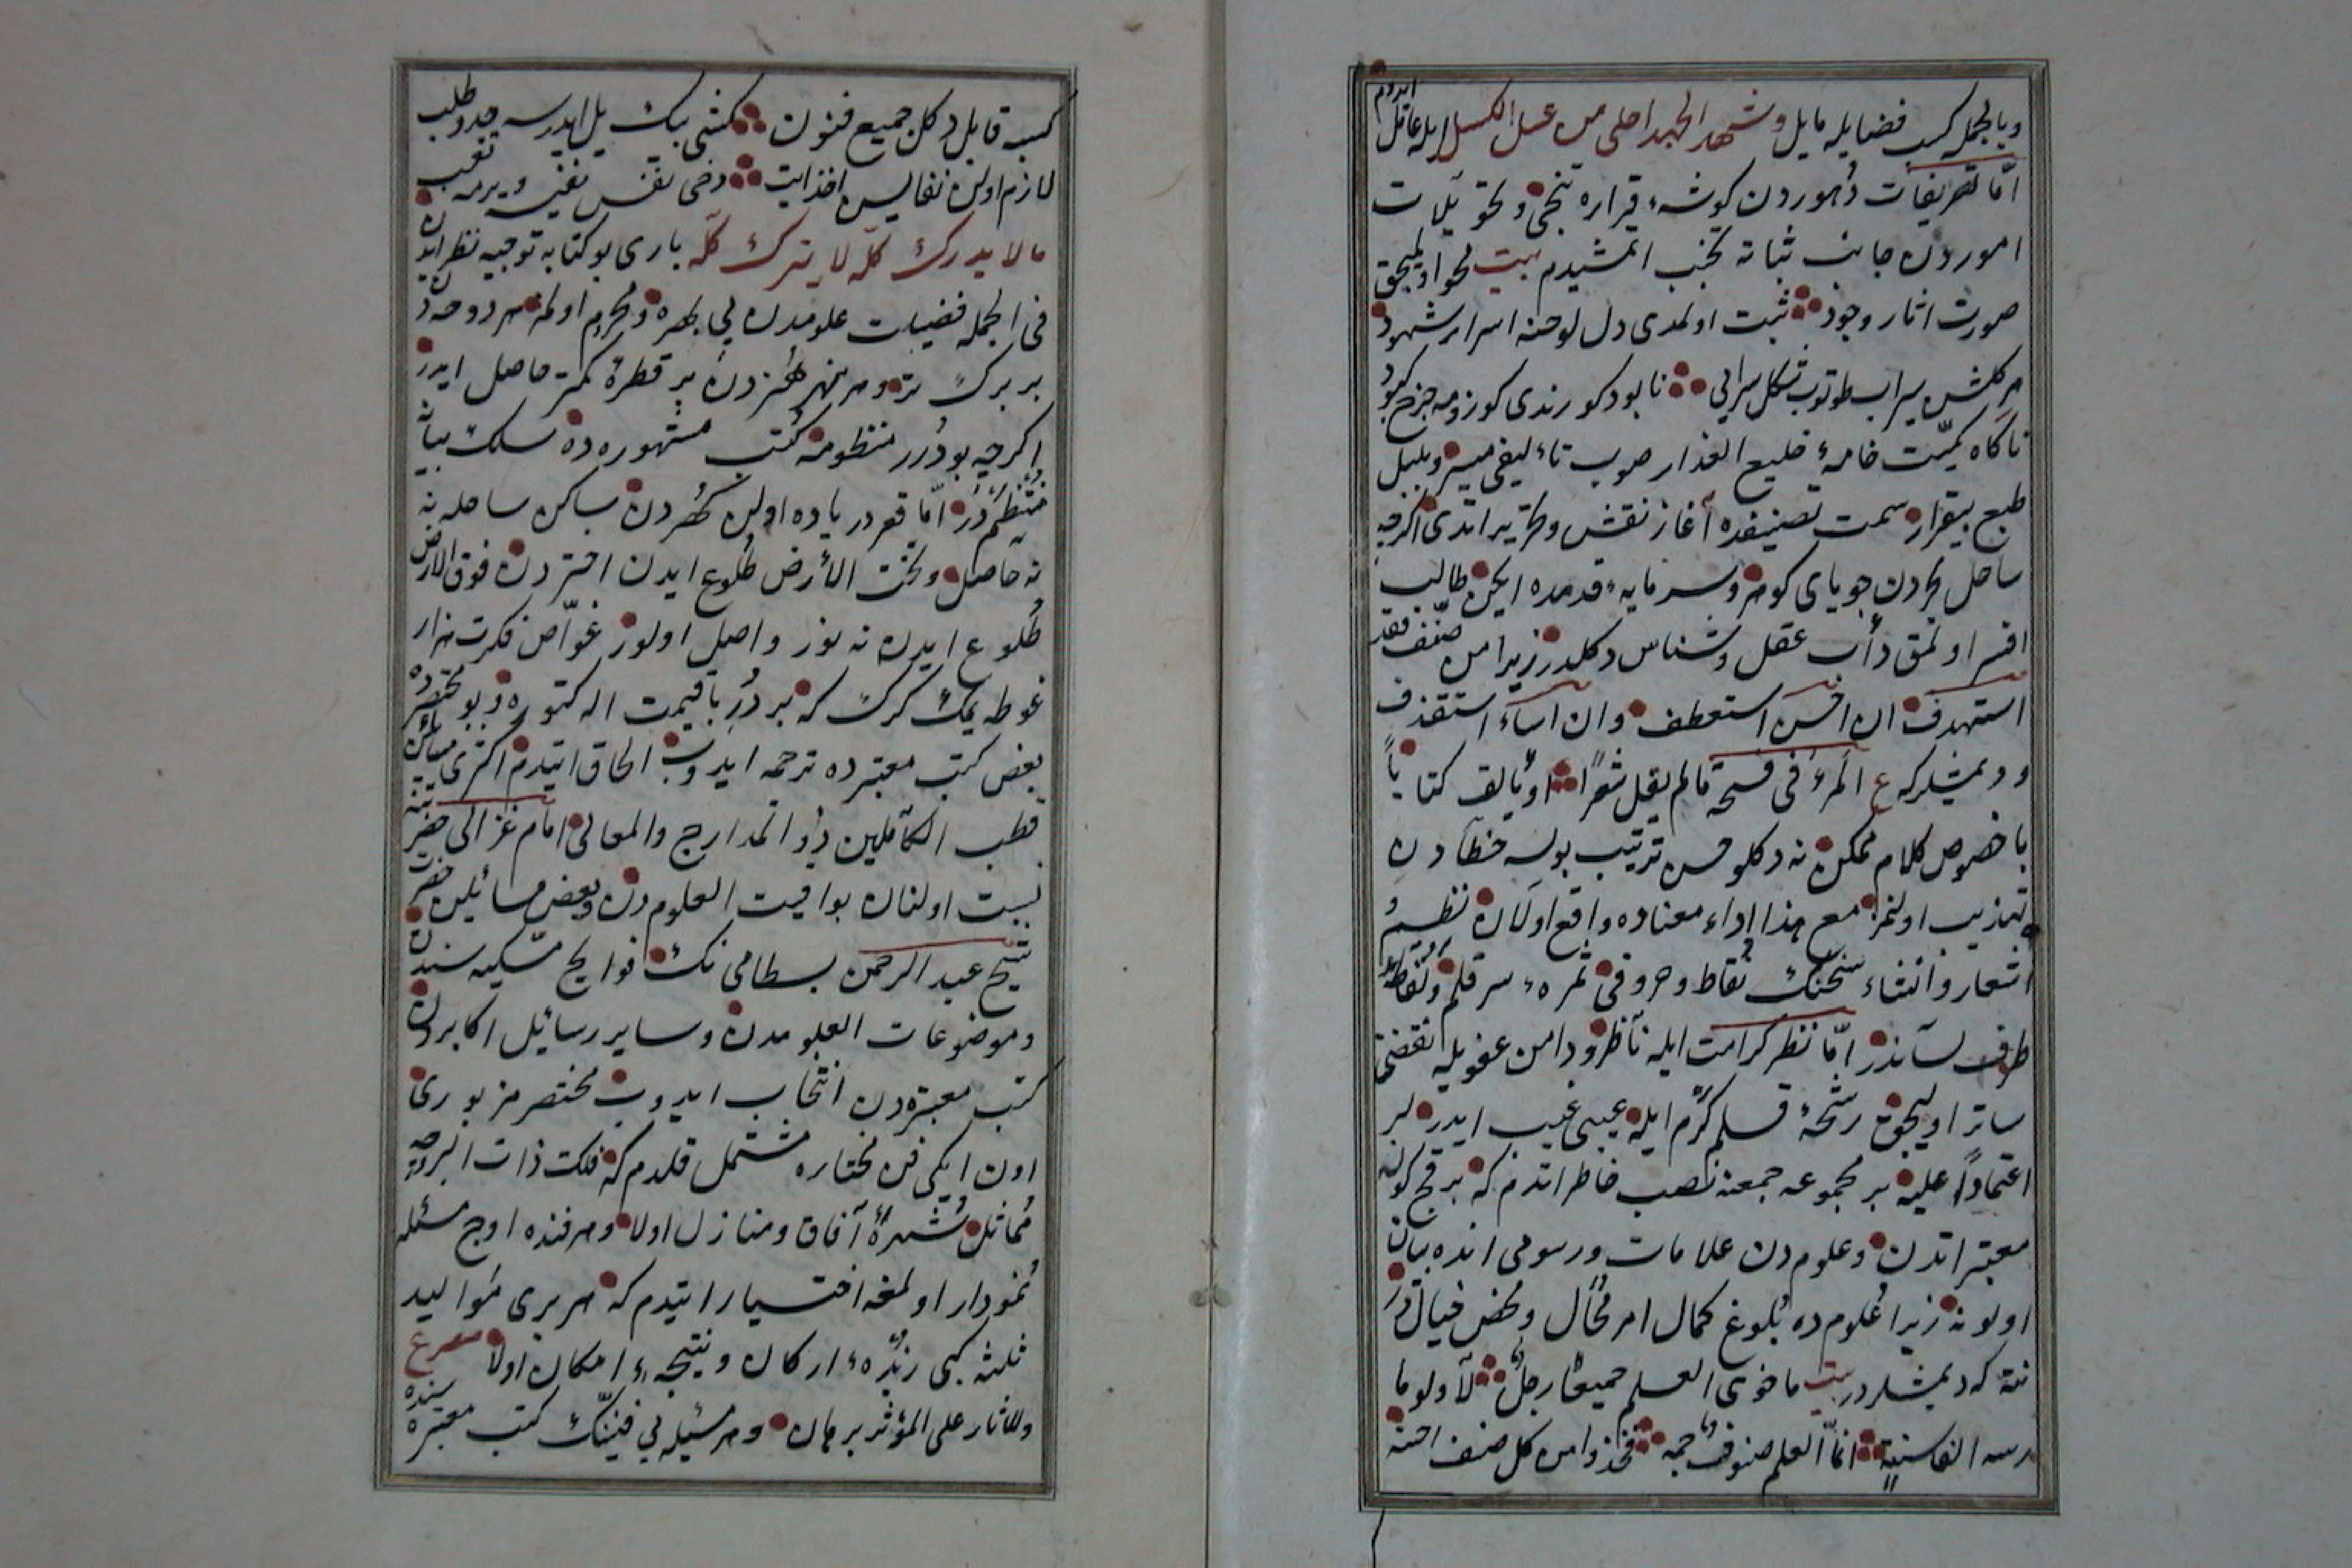 وبالجمله كسب فضايله مايل وشهد الجهد احلى من عسل الكسل ايله عاقل ايدم
امّا تصريفات دهوردن كوشهٔ قراره تنحّى وتحويلات
اموردن جانب ثباته تجنب اتمشيدم بيت محو اوليجق
صورت اثار وجود ثبت اولمدى دل لوحنه اسرار شهود
هر كلشن سيراب طوتوب شكل سرابى نابود كورندى كوزومه چرخ كبود
ناكاه كميت خامهٔ خليع العذار صوب تاٴليفى ميسر وبلبل
طبع بيقرار سمت تصنيفده آغاز نقش وتحرير اتدى اكرچه
ساحل بحردن جوياى كوهر وسرمايهٔ قدمده ايكن طالب
افسر اولمق دأب عقل وشناس دكلدر زيرا من صنف فقد
استهدف ان احسن استعطف وان اساء استقذف
ودیمشلركه ع المرء فى فسحة مالم يقل شعرًا او يألف كتابًا
باخصوص كلام ممكن نه دكلو حسن ترتيب بولسه خطآدن
تهذيب اولنمز مع هذا اداء معناده واقع اولان نظم
اشعار وانشاء سخنك نقاط وحروفى ثمرهٔ سر قلم ونقاطهٔ
طرف لساندر امّا نظر كرامت ايله ناظر ودامن عفويله
ساتر اوليجق رشحهٔ قلم كرم ايله عيبى غيب ايدرلر
اعتمادًا عليه بر مجموعه جمعنه نصب خاطر اتدم كه بر قچ كونه
معتبراتدن وعلومدن علامات ورسومى انده بيان
اولونه زيرا علومده بلوغ كمال امر محال ومحض خيالدر
نته كه ديمشلردر بيت ما حوى العلم جميعًا رجل لا ولو ما
رسه الف سنة انّما العلم صنوف جمّه فخذوا من كل صنف احسنه
كسبه قابل دكل جميع فنون كشى بيك ييل ايدرسه جد وطلب
لازم اولن نفايس اخذ ايت دخى نفس نفيسه ويرمه تعب
ما لا يدرك كله لا يترك كله بارى بو كتابه توجيه نظر ايدن
فى الجمله فضيلت علومدن بى بهره ومحروم اولمز هر دوحه دن
بر برك تر وهر نهر هنردن بر قطرهٔ كمتر حاصل ايدر
اكرچه بو درر منظومه كتب مشهوره ده سلك بيانه
منتظمدر امّا قعر درياده اولن كهردن ساكن ساحله نه
نه حاصل وتحت الأرض طلوع ايدن اختردن فوق الارض
طلوع ايدن نه نور واصل اولور غوّاص فكرت هزار
غوطه يمك كرك كه بر در باقيمت اله كتوره وبو مختصرده
بعض كتب معتبره ده ترجمه ايدوب الحاق ايتدم اكثرى مسائلن
قطب الكاملين ذو المدارج والمعالى امام غزالى حضرتنه
نسبت اولنان يواقيت العلومدن وبعض مسائلين حضرت
شيخ عبد الرحمن بسطامى نك فوايح مسكيه سندن
وموضوعات العلومدن وساير رسائل اكابردن
كتب معتبره دن انتخاب ايدوب مختصر مزبورى
اون ايكى فن مختاره مشتمل قلدم كه فلك ذات البروجه
مماثل شهرهٔ آفاق ومنازل اولا وهر فنده اوچ مسئله
نمودار اولمغه اختيار ايتدم كه هر برى مواليد
ثلثه كبى زبدهٔ اركان ونتيجهٔ امكان اولا مصرع
وللاثار على المؤثر برهان وهر مسئله يى فنّنك كتب معتبره سنده